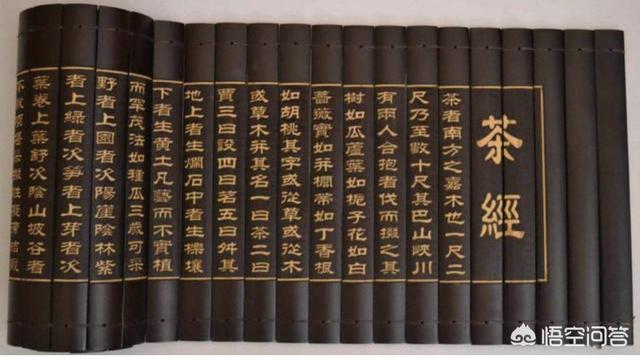 茶經
茶者南方之嘉木也一尺二
尺乃至數十尺其巴山峽川
有兩人合抱者伐而掇之其
樹如瓜蘆葉如梔子花如白
薔薇實如并櫚蒂如丁香根
如胡桃其字或從草或從木
或草木并其名一曰茶二曰
賈三曰設四曰茗五曰舛其
地上者生爛石中者生櫟壤
下者生黃土凡藝而不實植
而罕茂法如種瓜三歲可采
野者上園者次陽崖陰林紫
者上綠者次笋者上芽者次
葉卷上葉舒次陰山坡谷者
悟空问答